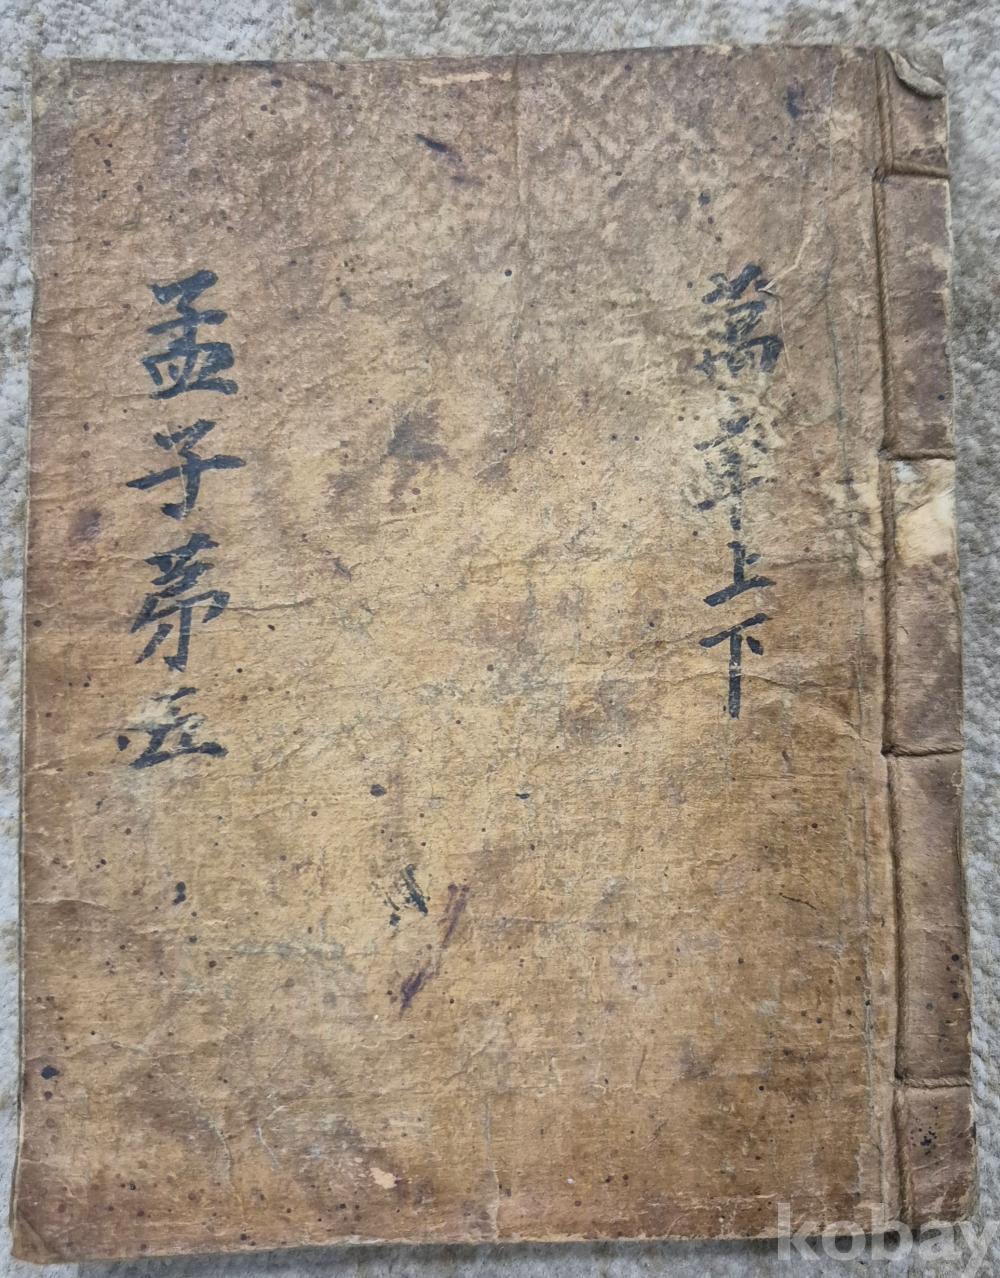 萬章上下
孟子苐五
kobay